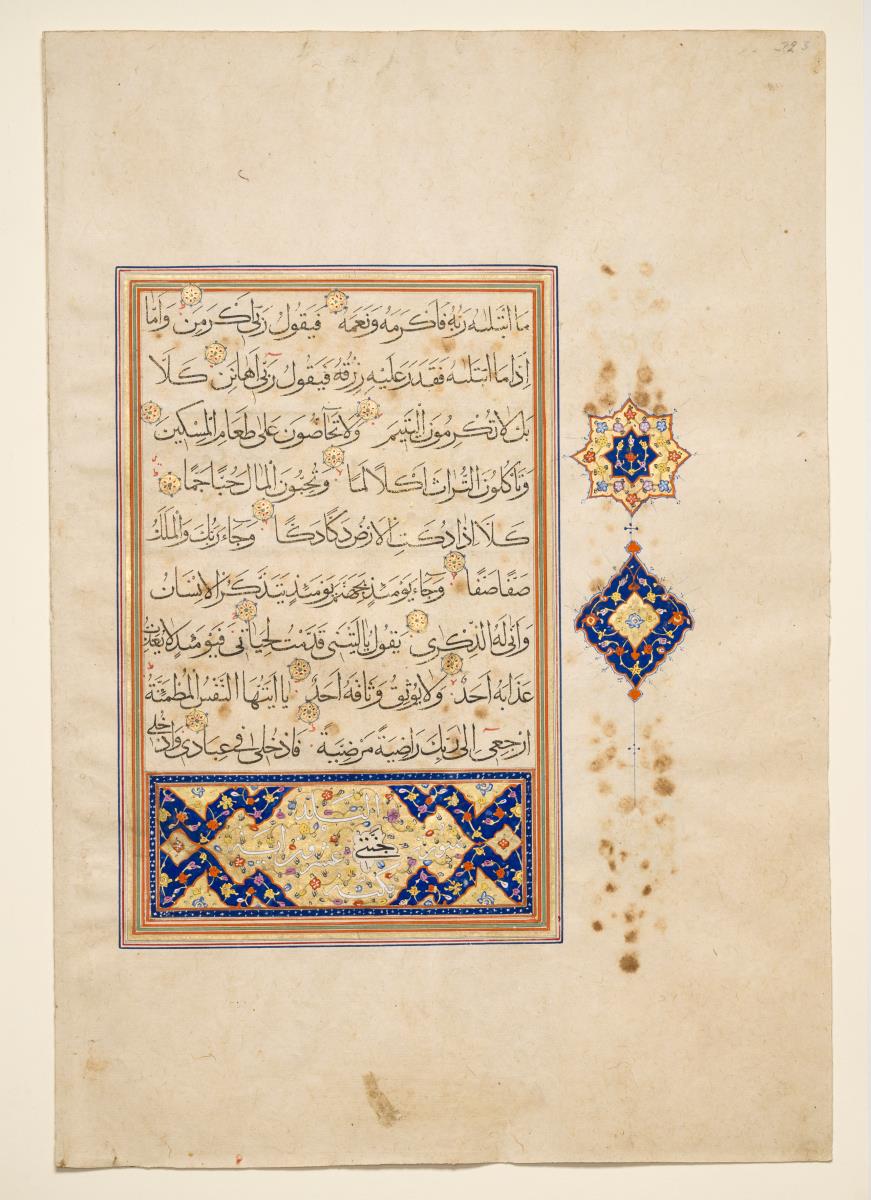 323
مَا ابْتَلىٰهُ رَبُّهُ فَاَكْرَمَهُ وَنَعَّمَهُ فَيَقُولُ رَبِّي اَكْرَمَنِ وَاَمَّا
اِذَا مَا ابْتَلىٰهُ فَقَدَرَ عَلَيْهِ رِزْقَهُ فَيَقُولُ رَبِّي اَهَانَنِ كَلَّا
بَلْ لَا تُكْرِمُونَ الْيَتِيمَ وَلَا تَحَاضُّونَ عَلٰى طَعَامِ الْمِسْكِينِ
وَتَأْكُلُونَ التُّرَاثَ اَكْلًا لَمًّا وَتُحِبُّونَ الْمَالَ حُبًّا جَمًّا
كَلَّا اِذَا دُكَّتِ الْاَرْضُ دَكًّا دَكًّا وَجَاءَ رَبُّكَ وَالْمَلَكُ
صَفًّا صَفًّا وَجِاىءَ يَوْمَئِذٍ بِجَهَنَّمَ يَوْمَئِذٍ يَتَذَكَّرُ الْاِنْسَانُ
وَاَنّٰى لَهُ الذِّكْرٰى يَقُولُ يَا لَيْتَنِي قَدَّمْتُ لِحَيَاتِي فَيَوْمَئِذٍ لَا يُعَذِّبُ
عَذَابَهُ اَحَدٌ وَلَا يُوثِقُ وَثَاقَهُ اَحَدٌ يَا اَيَّتُهَا النَّفْسُ الْمُطْمَئِنَّةُ
ارْجِعِي اِلٰى رَبِّكِ رَاضِيَةً مَرْضِيَّةً فَادْخُلِي فِي عِبَادِي وَادْخُلِي
البلد
سورة جَنَّتِي عشرون آية